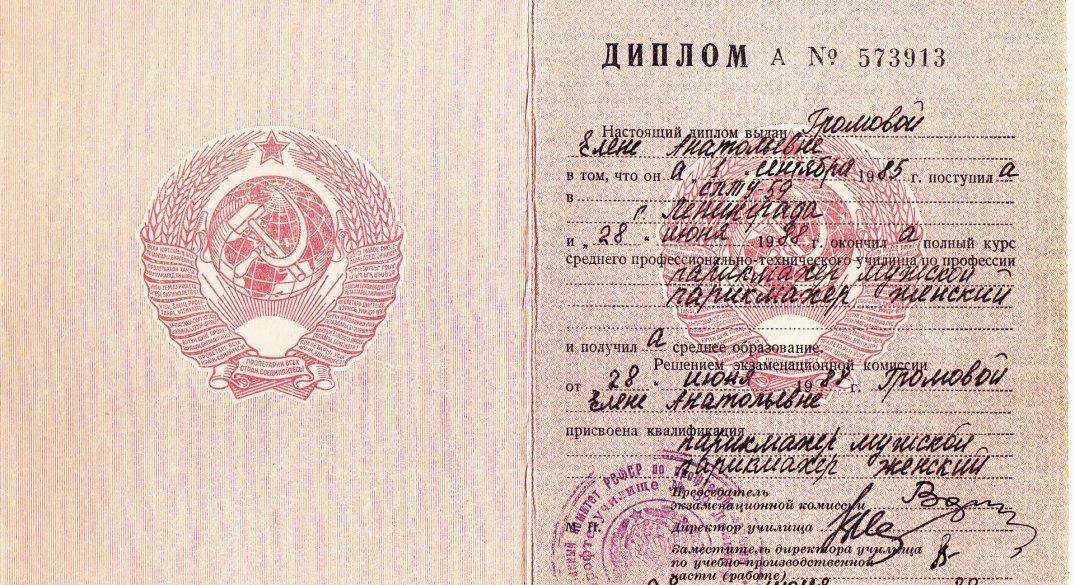 ПРОЛЕТАРИИ ВСЕХ
СТРАН, СОЕДИНЯЙТЕСЬ!
ДИПЛОМ А № 573913
Настоящий диплом выдан Громовой
Елене Анатольевне
в том, что он а „ 1 “ сентября 1985 г. поступил а
в СПТУ-59
г. Ленинграда
и „ 28 “ июня 1988 г. окончил а полный курс
среднего профессионально-технического училища по профессии
парикмахер мужской
парикмахер женский
и получил а среднее образование.
Решением экзаменационной комиссии
от 28 “ июня 1988 г. Громовой
Елене Анатольевне
присвоена квалификация
парикмахер мужской
парикмахер женский
Председатель
экзаменационной комиссии
М. П. Директор училища
Заместитель директора училища
по учебно-производственной
части (работе)